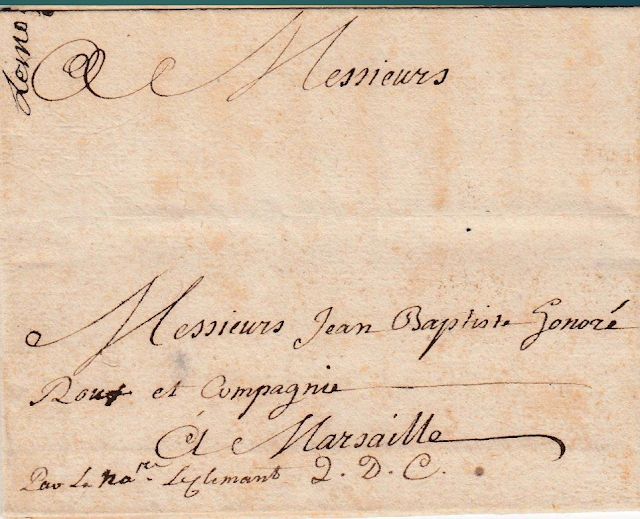 A Messieurs
Messieurs Jean Baptiste Honoré
Roux et Compagnie
A Marsaille
Par Le na.re Le Clemant Q. D. C.